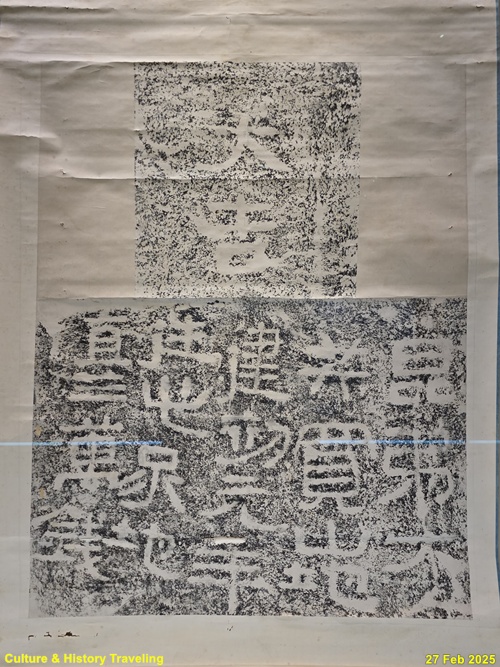 大吉
昆弟六人
共買山地
建初元年
造此冢地
直三萬錢
Culture & History Traveling
27 Feb 2025